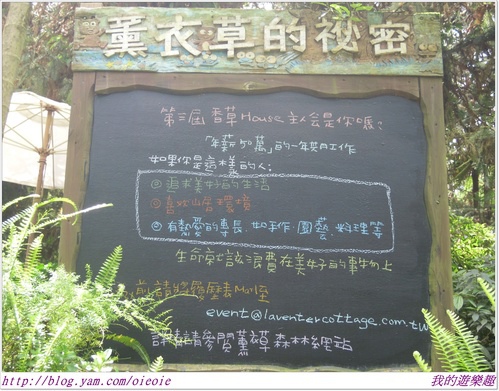 薰衣草的祕密
第三屆香草House主人會是你嗎?
「年薪50萬」的一年期工作
如果你是這樣的人:
◎追求美好的生活
◎喜歡山居環境
◎有熱愛的專長,如手作、園藝、料理等
生命就該浪費在美好的事物上
請將履歷表Mail至
event@laventercottage.com.tw
詳情請參閱薰衣草森林網站
http://blog.yam.com/oieoie
我的遊樂趣